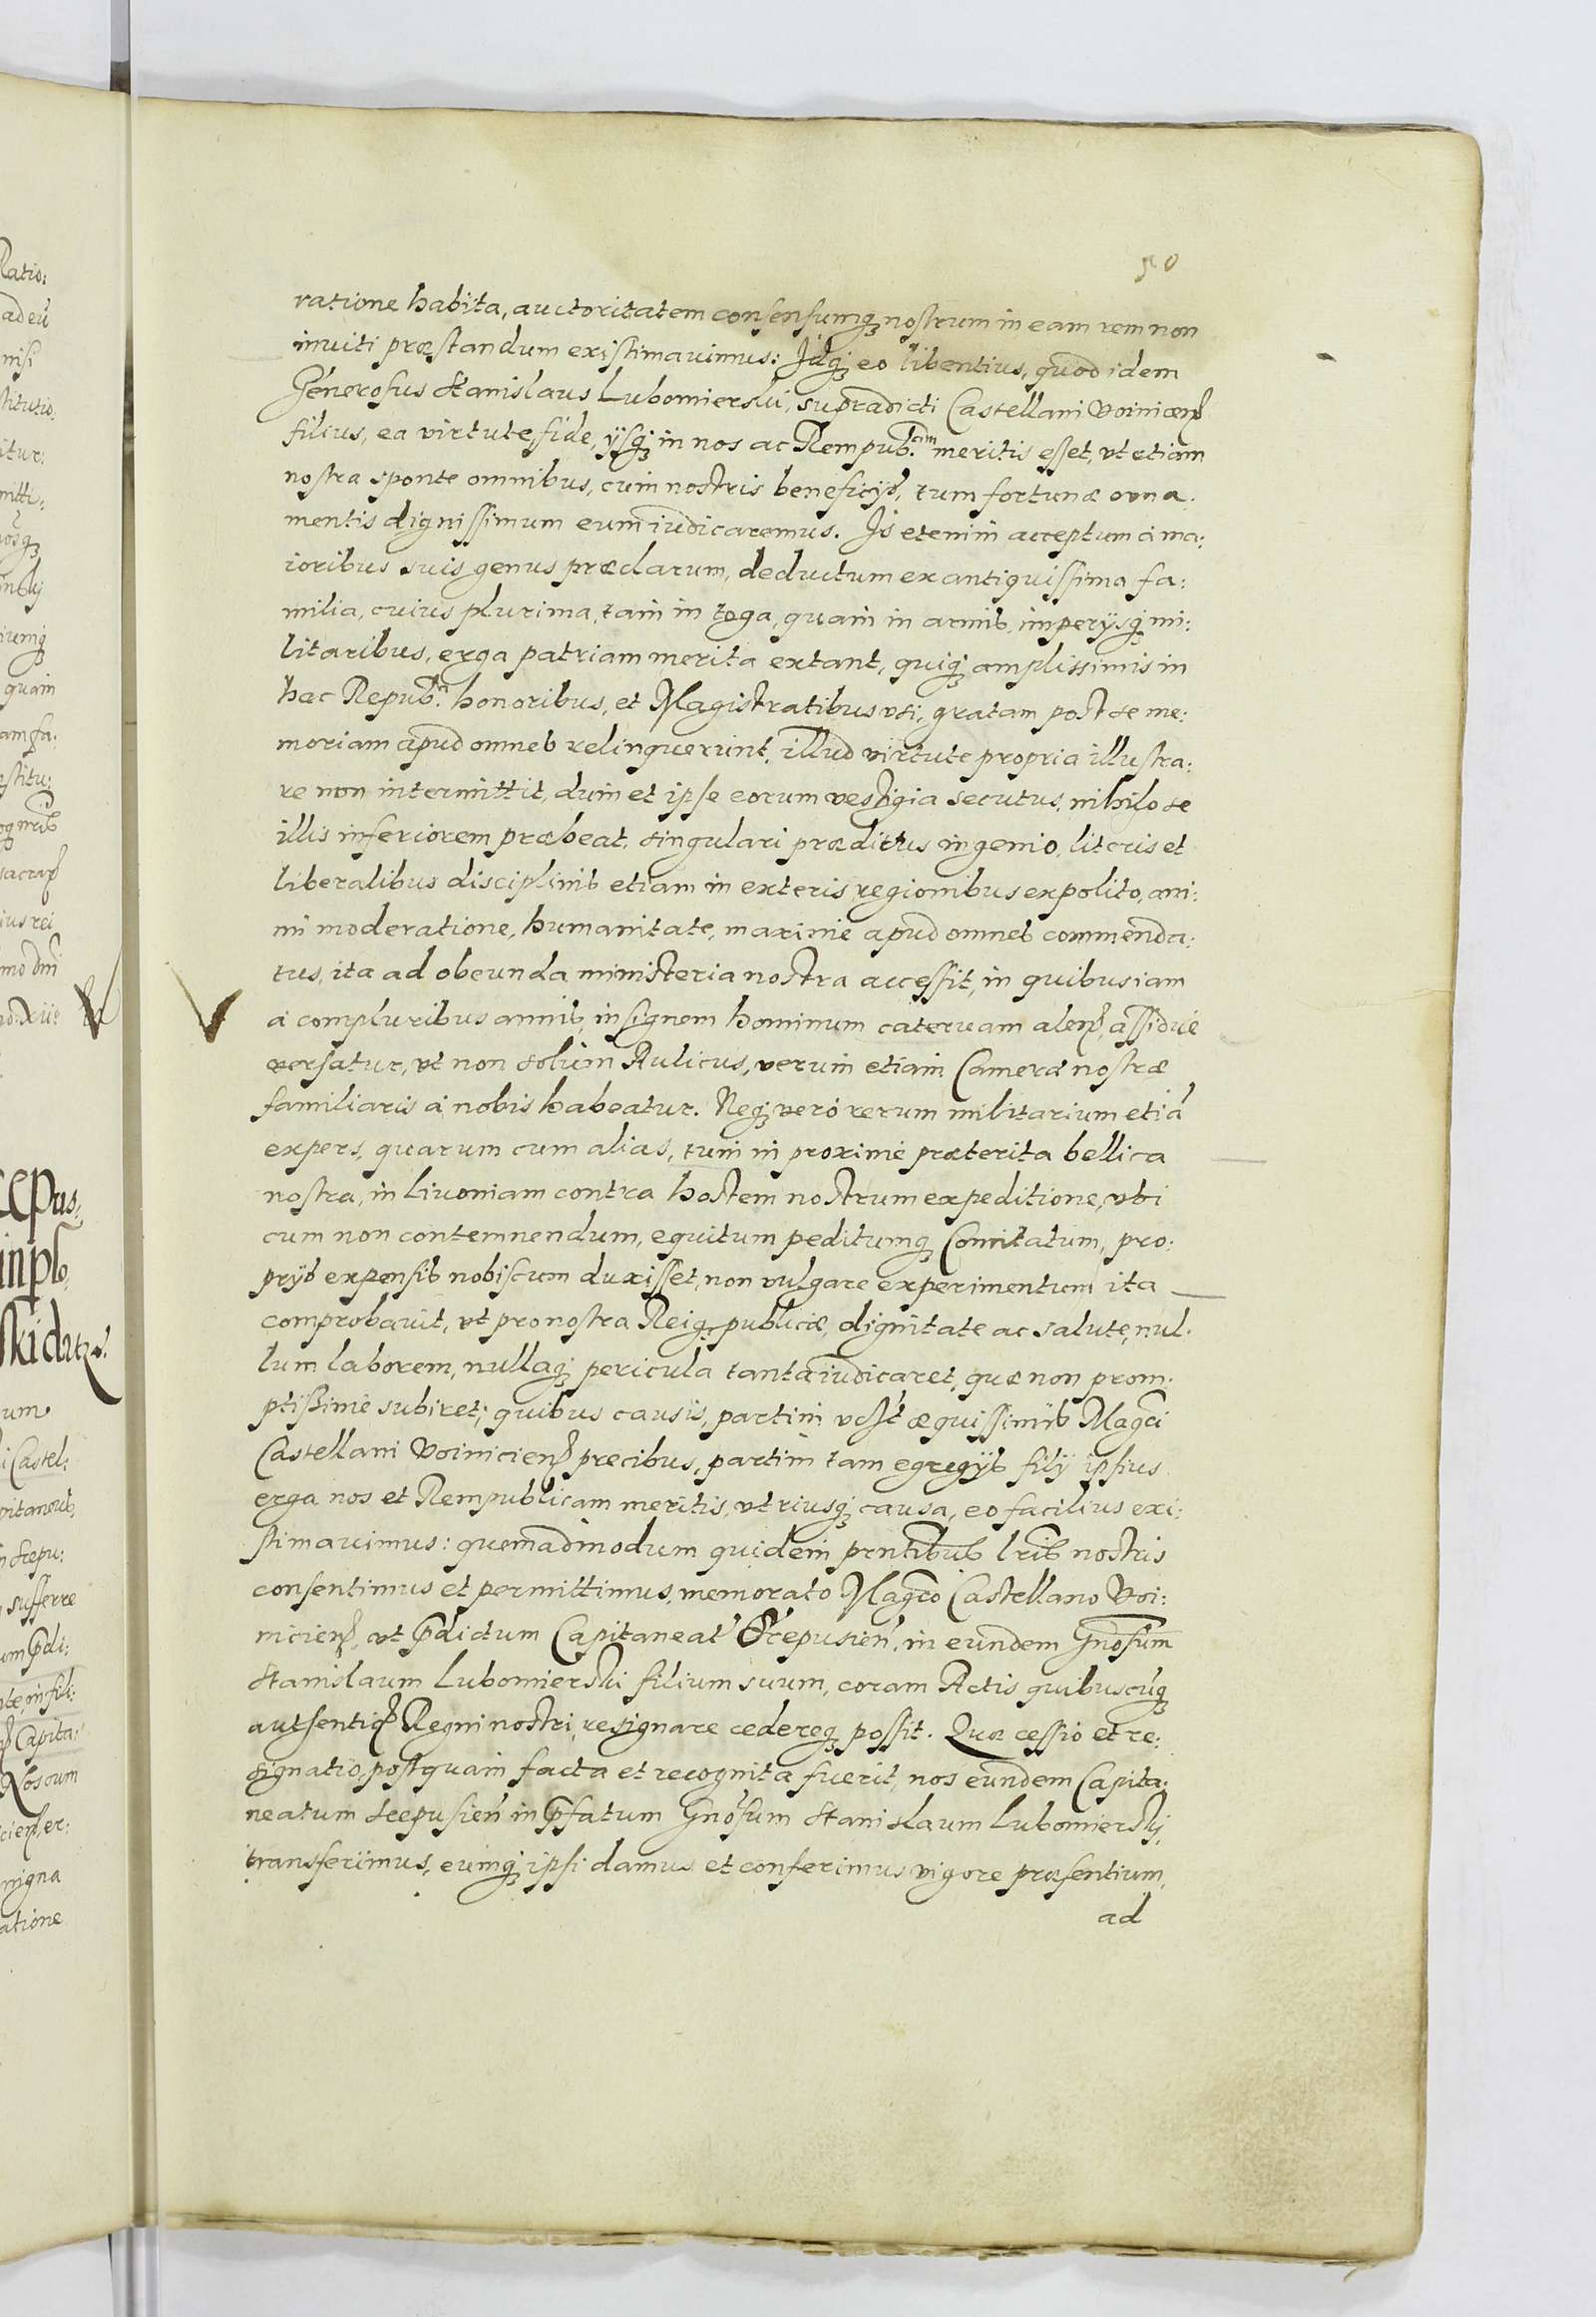 50
ratione habita, auctoritatem consensumq; nostrum in eam rem non
inviti præstandum existimavimus: Idq; eo libentius, quod idem
Generosus Stanislaus Lubomierski, supradicti Castellani Voinicen̄
filius, ea virtute, fide, ijsq; in nos ac Rempub.cam meritis esset, vt etiam
nostra sponte omnibus, cum nostris beneficijs, tum fortunæ orna.
mentis dignissimum eum iudicaremus. Is etenim acceptum à ma:
ioribus suis genus præclarum, deductum ex antiquissima fa:
milia, cuius plurima, tam in toga, quam in armis, imperijsq; mi:
litaribus, erga patriam merita extant, quiq; amplissimis in
hac Repub.ca honoribus, et Magistratibus vsi, gratam post se me:
moriam apud omnes relinquerunt, illud virtute propria illustra:
re non intermittit, dum et ipse eorum vestigia secutus, nihilo se
illis inferiorem præbeat, singulari præditus ingenio, literis et
liberalibus disciplinis etiam in exteris regionibus expolito, ani:
mi moderatione, humanitate, maxime apud omnes commenda:
tus, ita ad obeunda ministeria nostra accessit, in quibus iam
à compluribus annis, insignem hominum cateruam alens, assiduè
versatur, vt non solùm Aulicus, verum etiam Cameræ nostræ
familiaris à nobis habeatur. Neq; verò rerum militarium etiā
expers, quarum cum alias, tum in proximè præterita bellica
nostra, in Livoniam contra hostem nostrum expeditione, vbi
cum non contemnendum, equitum peditumq; Comitatum, pro:
prijs expensis nobiscum duxisset, non vulgare experimentum ita
comprobavit, vt pro nostra Reiq; publicæ, dignitate ac salute, nul.
lum laborem, nullaq; pericula tanta iudicaret, quæ non prom.
ptissimè subiret; quibus causis, partim æquissimis Mag̃ci
Castellani Voinicien̄ precibus, partim tam egregijs filij ipsius
erga nos et Rempublicam meritis, vtriusq; causa, eo facilius exi:
stimavimus: quemadmodum quidem prntibus lris nostris
consentimus et permittimus, memorato Mag̃co Castellano Voi:
nicien̄, vt p̄dictum Capitaneat̃ Scepusien̄, in eundem Gnosum
Stanislaum Lubomierski filium suum, coram Actis quibuscūq;
authenticis Regni nostri, resignare cedereq; possit. Quæ cessio et re:
signatio, postquam facta et recognita fuerit, nos eundem Capita:
neatum Scepusien̄ in p̄fatum Gnosum Stanislaum Lubomierskj,
transferimus, eumq; ipsi damus et conferimus vigore præsentium,
ad